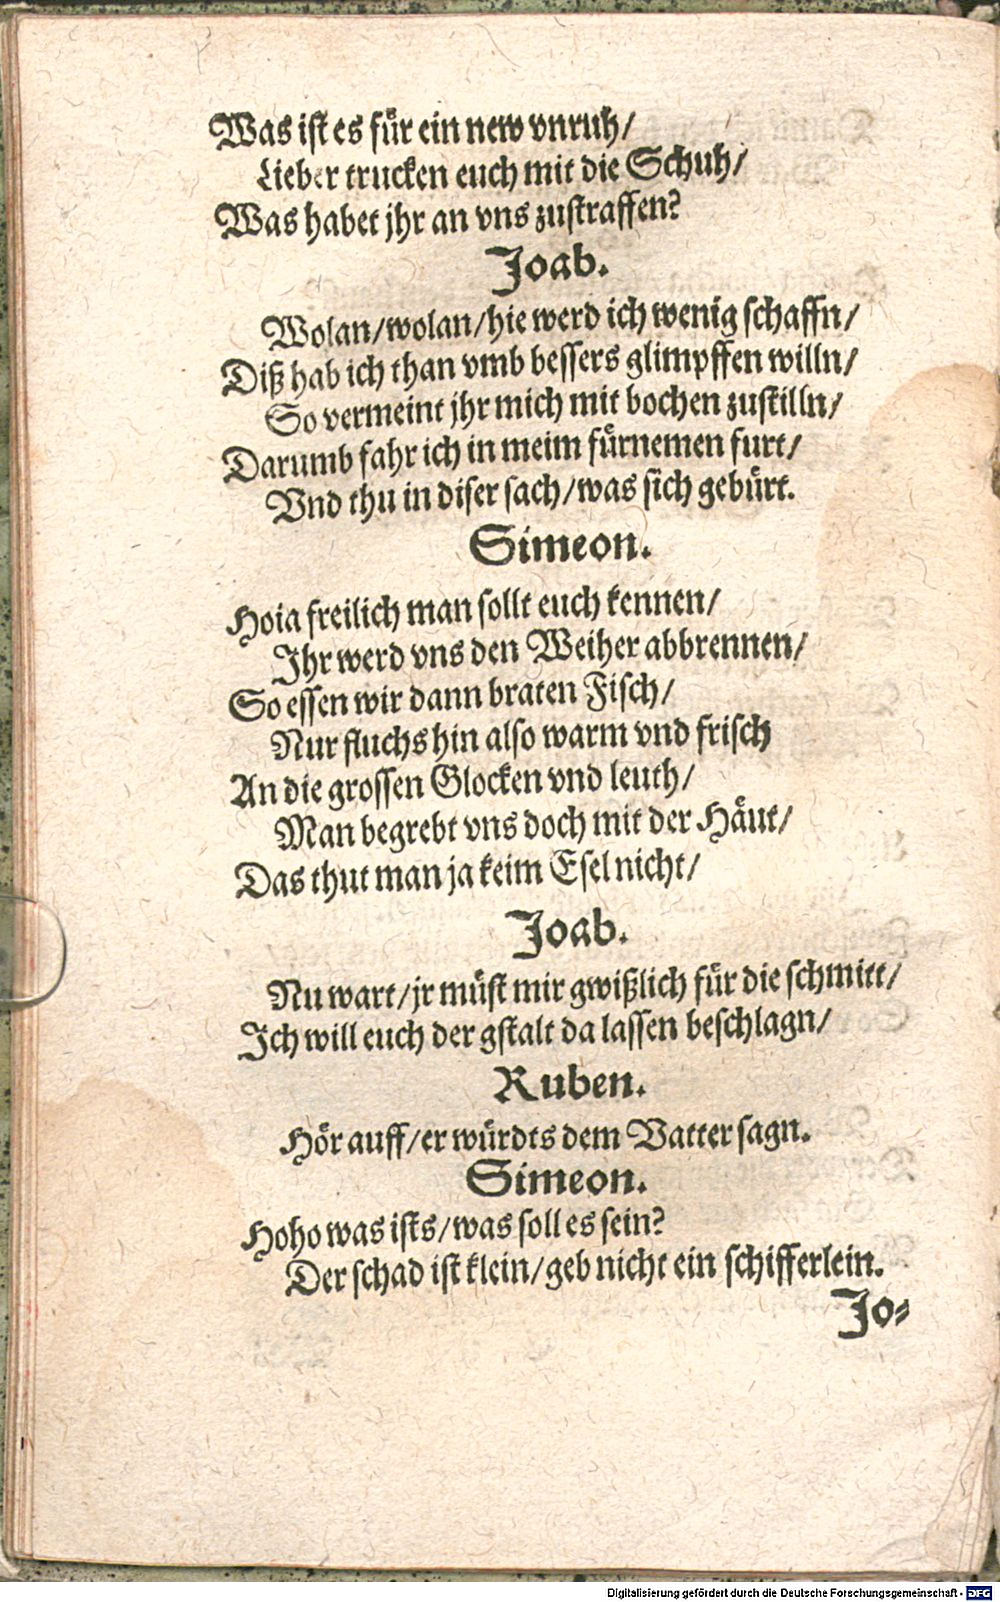 Was ist es für ein new vnruh/
Lieber trucken euch mit die Schuh/
Was habet jhr an vns zustraffen?
Joab.
Wolan/wolan/hie werd ich wenig schaffn/
Diß hab ich than vmb bessers glimpffen willn/
So vermeint jhr mich mit bochen zustilln/
Darumb fahr ich in meim fürnemen furt/
Vnd thu in diser sach/was sich gebürt.
Simeon.
Hoia freilich man sollt euch kennen/
Ihr werd vns den Weiher abbrennen/
So essen wir dann braten Fisch/
Nur fluchs hin also warm vnd frisch
An die grossen Glocken vnd leuth/
Man begrebt vns doch mit der Häut/
Das thut man ja keim Esel nicht/
Joab.
Nu wart/jr müst mir gwißlich für die schmitt/
Ich will euch der gstalt da lassen beschlagn/
Ruben.
Hör auff/er würdts dem Vatter sagn.
Simeon.
Hoho was ists/was soll es sein?
Der schad ist klein/geb nicht ein schifferlein.
Jo⸗
Digitalisierung gefördert durch die Deutsche Forschungsgemeinschaft - DFG